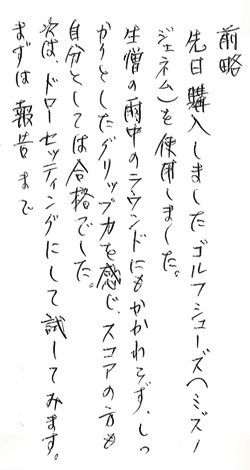 前略
先日購入しましたゴルフシューズ(ミズノ
ジェネム)を使用しました。
生憎の雨中のラウンドにもかかわらず、しっ
かりとしたグリップ力を感じ、スコアの方も
自分としては合格でした。
次は、ドローセッティングにして試してみます。
まずは報告まで